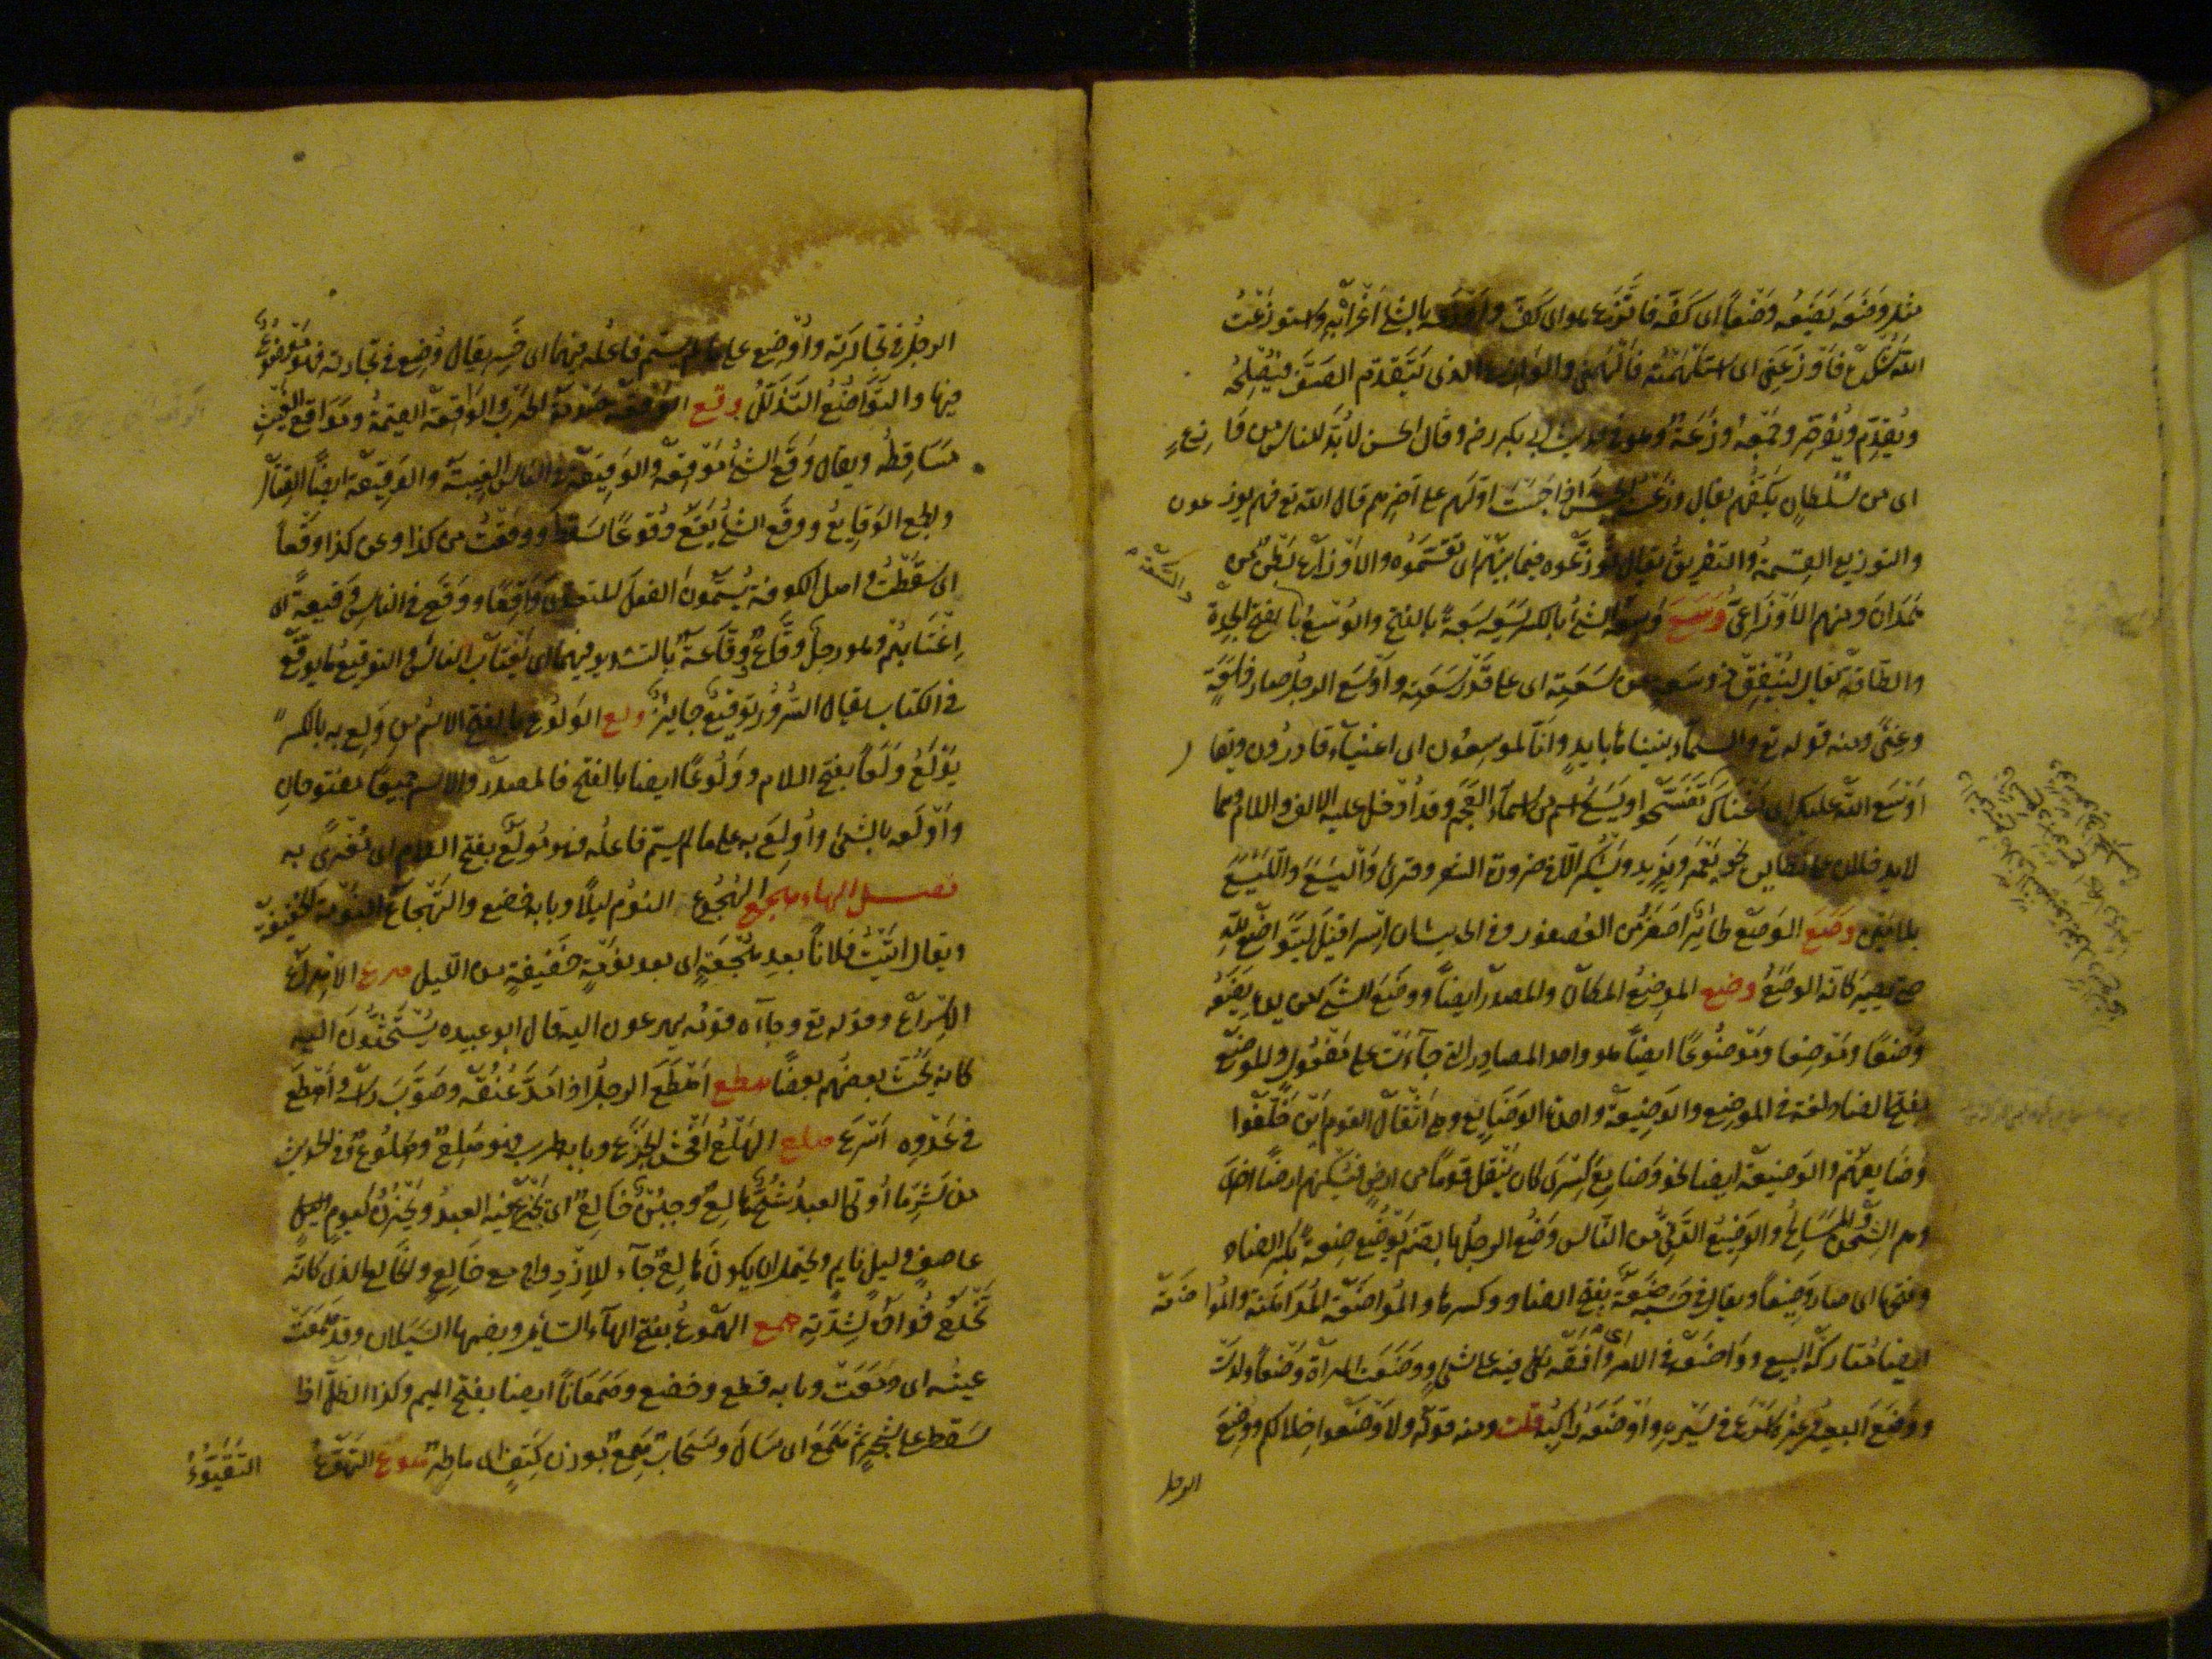 مثل وَضَعَه يَضَعُه وَضْعًا اى كَفَّه فاتَّزَعَ هو اى كفّ واَوْزَعَه بالشئ اَغْرَاه بِه واستوزَعْتُ
اللهَ شُكْرَه فاَوْزَعَنِى اى استَلْهَمْتُه فاَلْهَمَنى والوَازِعُ الذى يَتَقَدّم الصَفَّ فيُصْلِحُه
ويُقدّم ويُؤخّر وجَمْعه وَزَعَةٌ وهو فى حديث ابى بكر رضه وقال الحسن لا بُدّ للناس من وَازِعٍ
اى من سُلْطانٍ يَكُفُّهم يقال وزعتُ الجيشَ اذا حَبَسْتَ اوّلَهم على آخِرِهم قال الله تع فهم يوزعون
والتوزيع القِسْمَةُ والتَفْرِيقُ يقال تَوَزَّعُوه فيما بينَهم اى تَقَسَّمُوه والاَوْزَاعُ بَطْنٌ من
هَمْدَانَ ومنهم الاَوْزَاعىّ وَسِعَ وَسِعَه الشئُ بالكسر يَسَعُه سَعَةً بالفتح والوُسْعُ بالفتح الجِدَةُ
والطاقة
والطاقةُ يقال لِيُنْفِقْ ذو سَعَةٍ من سَعَتِه اى على قَدْر سَعَتِه واَوْسَعَ الرجلُ صار ذا سَعَةٍ
وغِنًى ومنه قوله تع والسماءَ بنيناها بايدٍ وانّا لموسِعُون اى اغنياءُ قادرُون ويقال
اَوْسَعَ اللهُ عليك اى اَغْنَاكَ تَفَسَّحُوا ويَسَعُ اسم من اسماء العَجَم وقد اُدْخِل عليه الالف واللام وهما
لا يدخلان على نظايره نحو يَعْمَرَ ويَزيد ويَشْكُرَ الّا فى ضرورة الشعر وقرئ وَالْيَسَعَ وَاللَّيْسَعَ
بلامَيْن وَصَعَ الوَصْع طائرٌ اَصْغَرُ من العُصفور وفى الحديث ان اِسْرافِيلَ لَيَتَواضَعُ للهِ
حتى يصِيرَ كانّه الوَصَعُ وضع الموضِعُ المكانُ والمصدرُ ايضًا ووضَعَ الشئَ من يده يَضَعُه
وَضْعًا ومَوْضِعا ومَوْضُوعًا ايضًا وهو واحد المصادِر التى جآءَت على مَفْعُول والموضَع
بفتح الضاد لغة فى الموضِع والوَضِيعَة واحدة الوَضَايِع وهى اَثْقَالُ القوم اَيْنَ خَلَّفُوا
وضَايِعَهُم والوَضيعَة ايضا نحو وَضايعُ كِسْرَى كان يَنْقُل قومًا من ارضٍ فيُسْكِنُهم ارضًا اخرى
وهم الشِّحَن والمَسَالِحُ والوَضِيعُ الدَنِىُّ من النّاس وَضُعَ الرجلُ بالضمّ يَوْضُع ضِعَةً بكسر الضاد
وفتحها اى صار وَضِيعًا ويقال فى حَسَبِه ضَعَةٌ بفتح الضاد وكسرها والمُواضَعَةُ المُراهَنَة والمُواضَعَة
ايضا مُتاركةُ البيع ووَاضَعَه فى الامر اى وَافَقَه فيه على شئٍ ووَضَعَت المرأةُ وَضْعًا ولدَت
ووضَعَ البعيرُ وغيرُه اَسْرَعَ فى سَيْرِه واَوْضَعَه راكِبُه قلت ومنه قولُه ولَاَوْضَعُوا خِلالَكم ووُضِعَ
الرجل
الرجلُ فى تِجَارَتِه واُوْضِعَ على ما لم يسمّ فاعلُه فيهما اى خَسِرَ يقال وُضِع فى تجارته فهو مَوْضُوعٌ
فيها والتَوَاضُعُ التَذَلُّلُ وقع الوَقْعَة صَدْمَةُ الحَرْب والواقِعَة القِيمَةُ ومَوَاقِع الغَيْث
مَسَاقِطُه ويقال وَقَعَ الشئُ مَوْقِعَه والوَقِيعَة فى الناس الغِيبَةُ والوَقِيعَة ايضًا القِتَال
والجمع الوَقايعُ ووقَعَ الشئُ يَقَعُ وُقُوعًا سَقَطَ ووقعْتُ من كذا وعن كذا وَقْعًا
اى سَقَطْتُ واهل الكوفة يُسَمُّونَ الفعلَ المتعدّى وَاقِعًا ووَقَعَ فى الناس وَقيعَةً اى
اِغْتَابَهُم وهو رجل وَقَّاعٌ ووَقَّاعَةٌ بالتشديد فيهما اى يَغْتابُ الناسَ والتوقيع ما يُوقَّع
فى الكتاب يقال السُرُورُ تَوْقيعٌ جايزٌ ولع الوَلُوع بالفتح الاسمُ من وَلِعَ به بالكسر
يَوْلَعُ وَلَعًا بفتح اللام ووَلُوعًا ايضا بالفتح فالمصدر والاسم جميعًا مفتوحان
واَوْلَعه بالشئ واُولِعَ به على ما لم يسمّ فاعلُه فهو مُولَعٌ بفتح اللام اى مُغْرًى به
فصل الهاء هجع الهُجُوعُ النومُ ليلًا وبابه خضع والتَهْجاع النَوْمة الخفيفة
ويقال اتيتُ فلانًا بعدَ هَجْعَةٍ اى بعد نَوْمةٍ خَفيفةٍ من اللّيل هرع الاِهْرَاعُ
الاِسْرَاعُ وقوله تع وجآءه قومُه يهرعون اليه قال ابو عبيده يُسْتَحَثُّونَ اليه
كانه يَحُثّ بعضُهم بعضًا هطع اَهْطَعَ الرجلُ اذا مَدَّ عُنُقَه وصَوَّبَ رأسَه واَهْطَعَ
فى عَدْوِه اَسْرَعَ هلع الهَلَعُ اَفْحَشُ الجَزَع وبابه طرب فهو هَلِعٌ وهَلُوعٌ وفى الحديث
من شَرِّ ما اُوتى العبدُ شُحٌّ هالِعٌ وجُبْنٌ خَالِعٌ اى يَجْزَعُ فيه العبدُ ويَحْزَنُ كيومٍ
عاصفٍ وليل نايمٍ ويحتمل ان يكونَ هالِعٌ جآء للازدواج مع خَالِعٍ والخالع الذى كانّه
يَخْلَعُ فُؤادَه لِشِدَّتِه همع الهَمُوعُ بفتح الهآء السايلُ وبضمها السَيَلان وقد هَمَعَت
عينُه اى دَمَعَتْ وبابه قطع وخضع وهَمَعَانًا ايضا بفتح الميم وكذا الطَلُّ اذا
سَقَطَ على الشَجَر ثم هَمَعَ اى سَالَ وسَحَابٌ هَمِعٌ بوزن كَتِفٍ اى ماطِرٌ هوع التَهَوُّعُ التَقَيُّؤُ